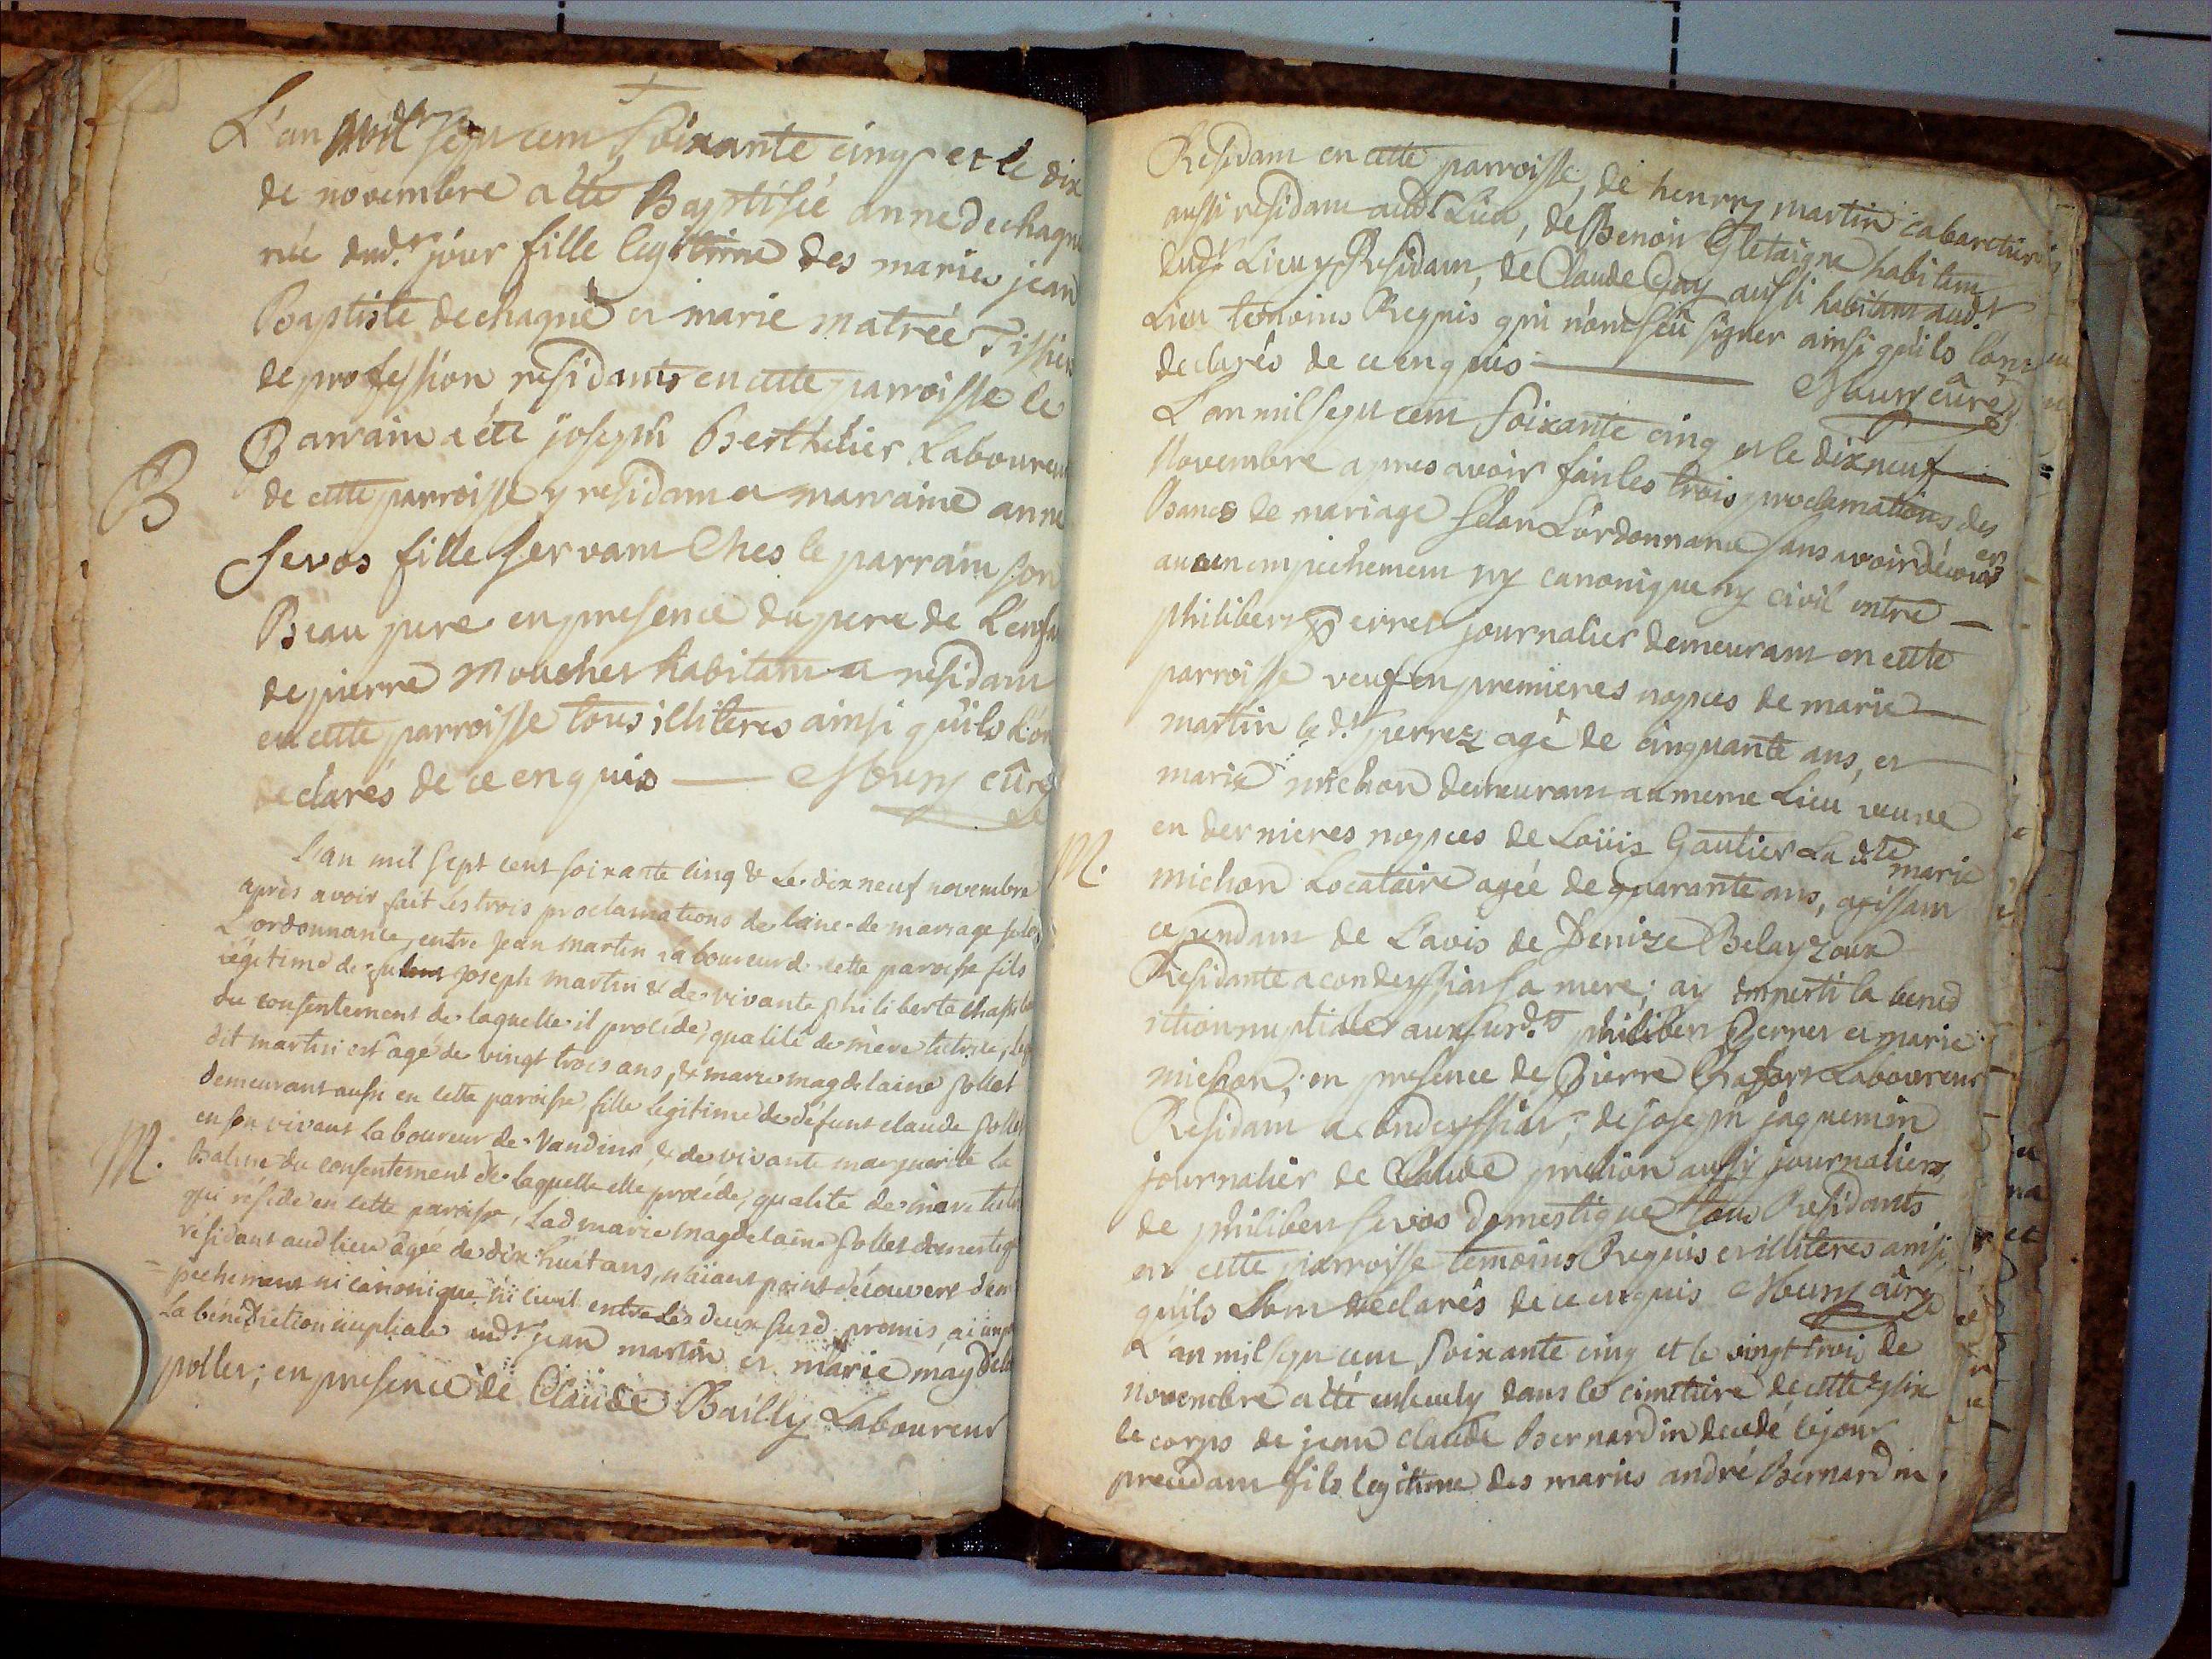 L'an mil sept cent soixante cinq et le dix
de novembre a été Baptisée anne dechagne
née dud.t jour fille legitime des maries jean
Baptiste dechagne et marie matrée Tissier
de profession residants en cette parroisse le
Parrain a été joseph Berthelier Laboureur
B
de cette parroisse y residant et marraine anne
Sevos fille servant Ches le parrain son
Beau pere en presence du pere de L'enfan
de pierre Moucher habitant et residant
en cette parroisse tous illiteres ainsi qu'ils L'on
declarés de ce enquis — Moury curé
L'an mil sept cent soixante cinq & Le dix neuf novembre
après avoir fait Les trois proclamations de banc de mariage selon
L'ordonnance, entre jean martin Laboureur de cette paroisse fils
Légitime de joseph martin & de vivante philiberte
du consentement de laquelle il procéde, qualité de mère tutrice, le
dit martin est agé de vingt trois ans, & marie magdelaine pollet
demeurant aussi en cette paroisse, fille légitime de défunt claude pollet
en son vivant Laboureur de Vandins, & de vivante marguerite La
M.
Balme du consentement de laquelle elle procéde, qualité de mere tutri
qui réside en cette paroisse, Lad marie magdelaine pollet domestiq
résidant aud lieu agée de dix huit ans, n'aiant point découvert d'em
=pechement ni canonique ni civil entre les deux susd. promis, ai imp
La bénédiction nuptiale aud.t jean martin et marie magdela
pollet; en presence de Claude Bailly Laboureur
Residant en cette parroisse, de henry martin cabaretier
aussi residant aud.t Lieu, de Benoit Gletaigne habitant
dud.t Lieu y Residant, de Claude Gay aussi habitant aud.t
Lieu temoins Requis qui n'ont sçu signer ainsi qu'ils l'ont
declarés de ce enquis — Moury curé
L'an mil sept cent soixante cinq et le dix neuf —
Novembre apres avoir fait les trois proclamations des
Bancs de mariage selon L'ordonnance sans avoir découvert
aucun empechement ny canonique ny civil entre —
philibert perret journalier demeurant en cette
parroisse veuf en premieres nopces de marie —
martin le d.t perret agé de cinquante ans, et —
marie michon demeurant au meme Lieu veuve
en dernieres nopces de Loüis Gautier La d.te marie
M.
michon Locataire agée de quarante ans, agissant
cependant de L'avis de Denize Belayzoux
Residante a condeyssiat sa mere; ai imperti la bened
iction nuptiale aux susd.ts philibert perret et marie
michon, en presence de Pierre Chafort Laboureur
Residant a condeyssiat; de joseph jaquemin
journalier de Claude aussy journalier,
de philibert sevos domestique tous Residants
en cette parroisse temoins Requis et illiteres ainsi
qu'ils L'ont declarés de ce enquis Moury curé
L'an mil sept cent soixante cinq et le vingt trois de
novembre a été ensevely dans le cimetiere de cette eglise
le corps de jean claude Bernardin decedé le jour
precedant fils legitime des maries andré Bernardin